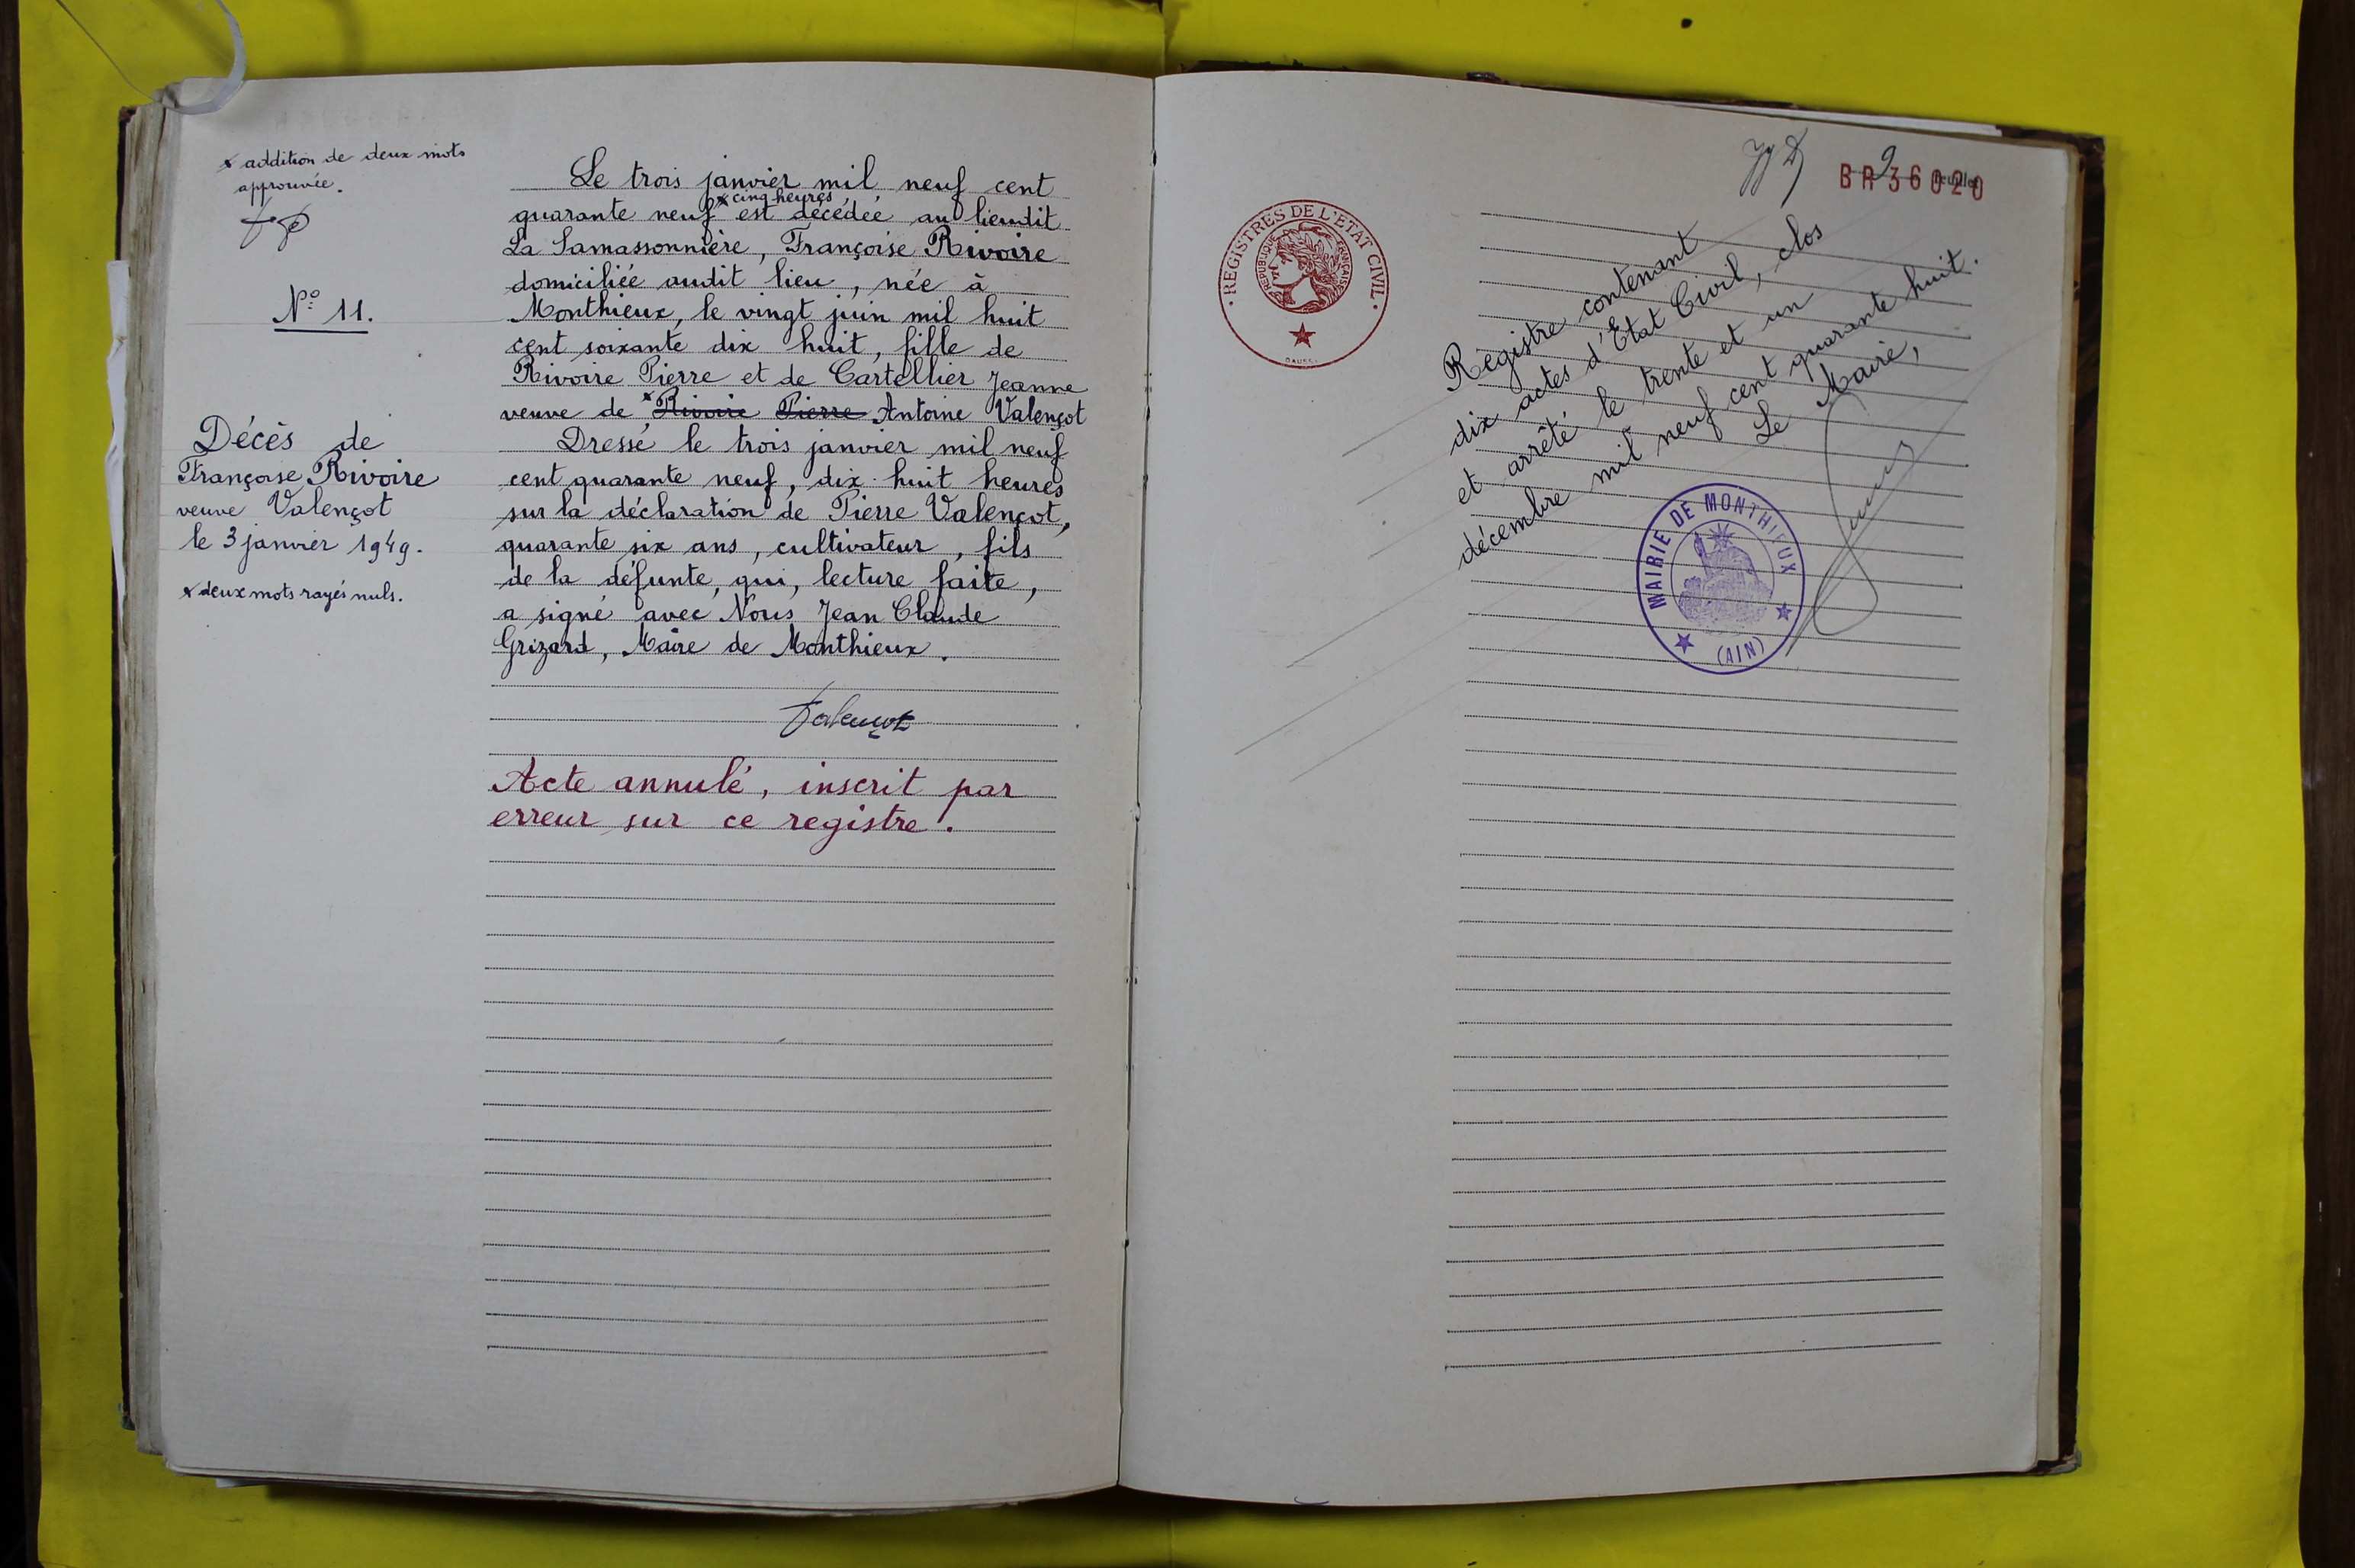 x addition de deux mots
approuvée.
N° 11.
Décès de
Françoise Rivoire
veuve Valençot
le 3 janvier 1949.
x deux mots rayés nuls.
Le trois janvier mil neuf cent
x cinq heures
quarante neuf est décédée au lieudit
La Samassonnière, Françoise Rivoire
domiciliée audit lieu, née à
Monthieux, le vingt juin mil huit
cent soixante dix huit, fille de
Rivoire Pierre et de Cartellier Jeanne
veuve de x Rivoire Pierre Antoine Valençot
Dressé le trois janvier mil neuf
cent quarante neuf, dix huit heures
sur la déclaration de Pierre Valençot,
quarante six ans, cultivateur, fils
de la défunte, qui, lecture faite,
a signé avec Nous Jean Claude
Grizard, Maire de Monthieux.
Valençot
Acte annulé, inscrit par
erreur sur ce registre.
2
BR36020
REGISTRES DE L'ETAT CIVIL
REPUBLIQUE FRANÇAISE
Registre contenant
dix actes d'Etat Civil, clos
et arrêté le trente et un
décembre mil neuf cent quarante huit.
Le Maire,
MAIRIE DE MONTHIEUX
(AIN)